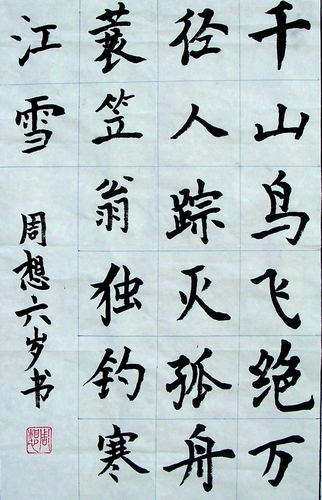 千山鸟飞绝万
径人踪灭孤舟
蓑笠翁独钓寒
江雪
周想六岁书
周想